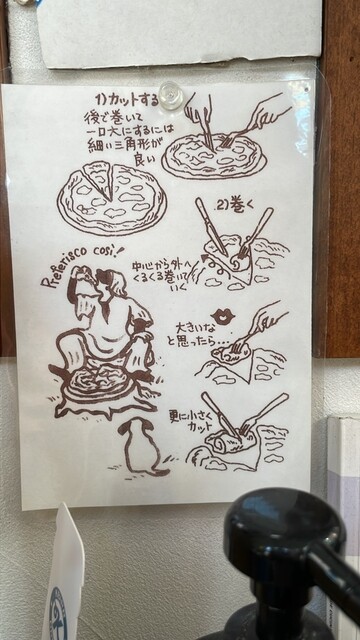 1)カットする
後で巻いて
一口大にするには
細い三角形が
良い
2)巻く
中心から外へ
くるくる巻いて
いく
Preferisco così!
大きいな
と思ったら...
更に小さく
カット